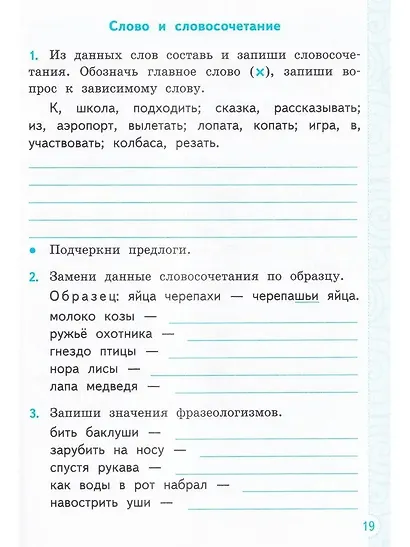 Слово и словосочетание
1. Из данных слов составь и запиши словосоче-
тания. Обозначь главное слово (×), запиши во-
прос к зависимому слову.
К, школа, подходить; сказка, рассказывать;
из, аэропорт, вылетать; лопата, копать; игра, в,
участвовать; колбаса, резать.
• Подчеркни предлоги.
2. Замени данные словосочетания по образцу.
Образец: яйца черепахи — черепашьи яйца.
молоко козы —
ружьё охотника —
гнездо птицы —
нора лисы —
лапа медведя —
3. Запиши значения фразеологизмов.
бить баклуши —
зарубить на носу —
спустя рукава —
как воды в рот набрал —
навострить уши —
19